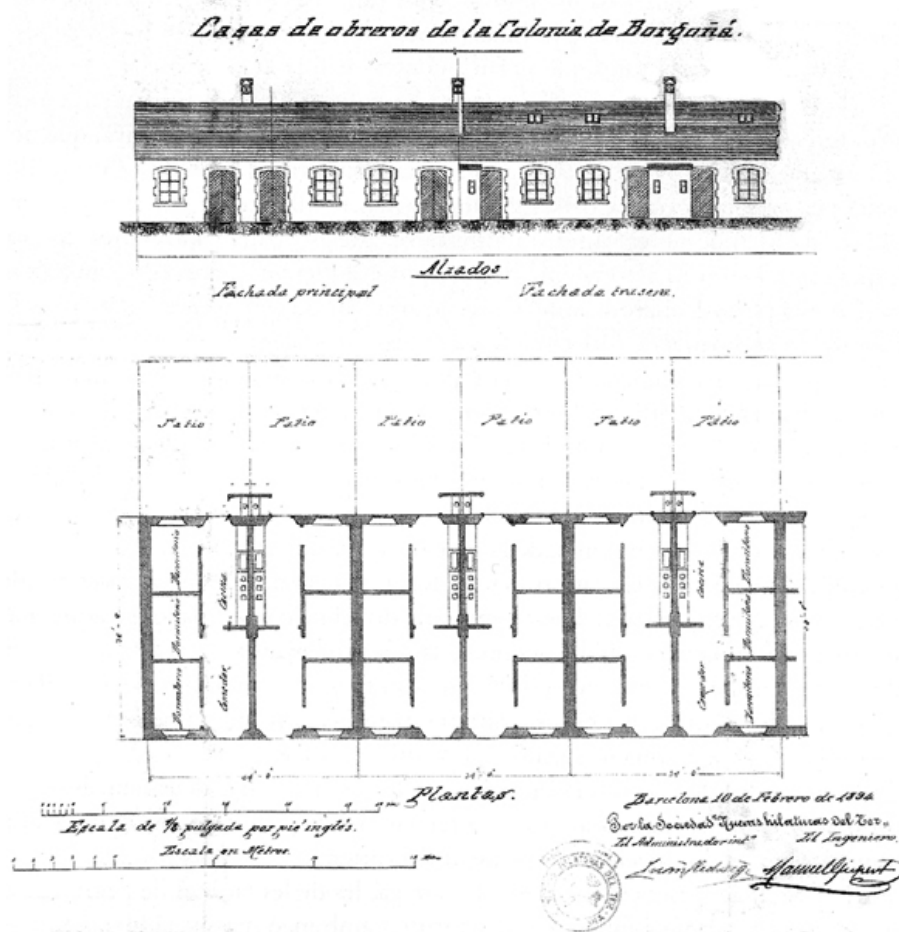 Casas de obreros de la Colonia de Borgoñá.
Alzados
Fachada principal
Fachada trasera.
Patio Patio Patio Patio Patio Patio
Dormitorio
Dormitorio
Dormitorio
Cocina
Comedor
Cocina
Comedor
Dormitorio
Dormitorio
Dormitorio
Plantas.
Escala de 1/8 pulgada por pié inglés.
Escala en Metros.
Barcelona 10 de Febrero de 1894
Por la Sociedad "Nuevas hilaturas del Ter"
El Administrador
El Ingeniero.
Manuel